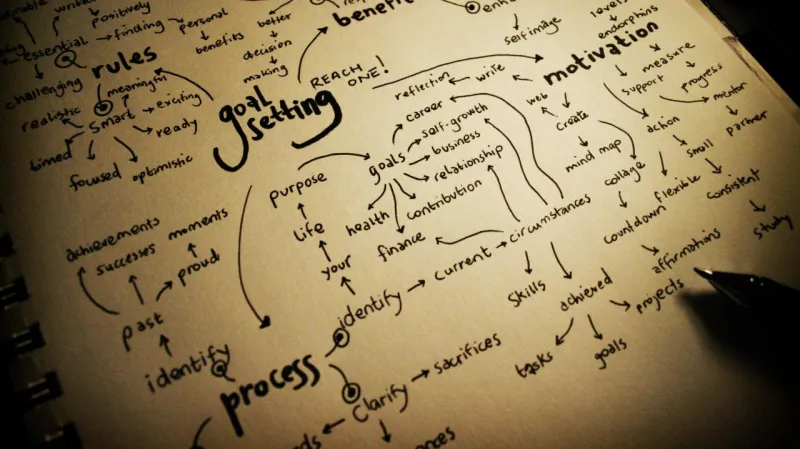 positively
essential
finding
personal
benefits
better
decision
making
self image
levels
endorphins
rules
challenging
realistic
meaningful
smart
exciting
ready
timed
focused
optimistic
goal
setting
REACH
ONE!
motivation
reflection
write
web
create
mind map
collage
countdown
support
measure
progress
mentor
action
small
partner
flexible
consistent
study
affirmations
goals
career
self-growth
business
relationship
contribution
health
finance
purpose
life
your
identify
current
circumstances
skills
achieved
projects
tasks
goals
achievements
successes
moments
proud
past
identify
process
Clarify
sacrifices